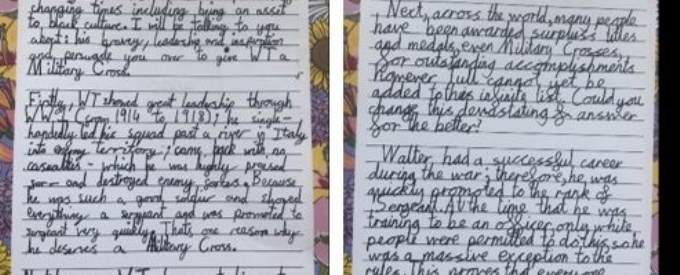 changing times including being an asset
to black culture. I will be talking to you
about: his bravery, leadership and inspiration
and persuade you over to give WT a
Military Cross.
Firstly, WT showed great leadership through
WW1 (from 1914 to 1918); he single-
handedly led his squad past a river in Italy
into enemy territory; came back with no
casualties - which he was highly praised
for - and destroyed enemy forts. Because
he was such a good soldier and showed
everything a sergeant and was promoted to
sergeant very quickly. Thats one reason why
he deserves a Military Cross.
Next, across the world, many people
have been awarded surpluss titles
and medals, even Military Crosses,
for outstanding accomplishments
however Tull cannot yet be
added to this infinite list. Could you
change this devastating answer
for the better?
Walter, had a successful career
during the war; therefore, he was
quickly promoted to the rank of
Sergeant. At the time that he was
training to be an officer, only white
people were permitted to do this, so he
was a massive exception to the
rules. This proves that everyone